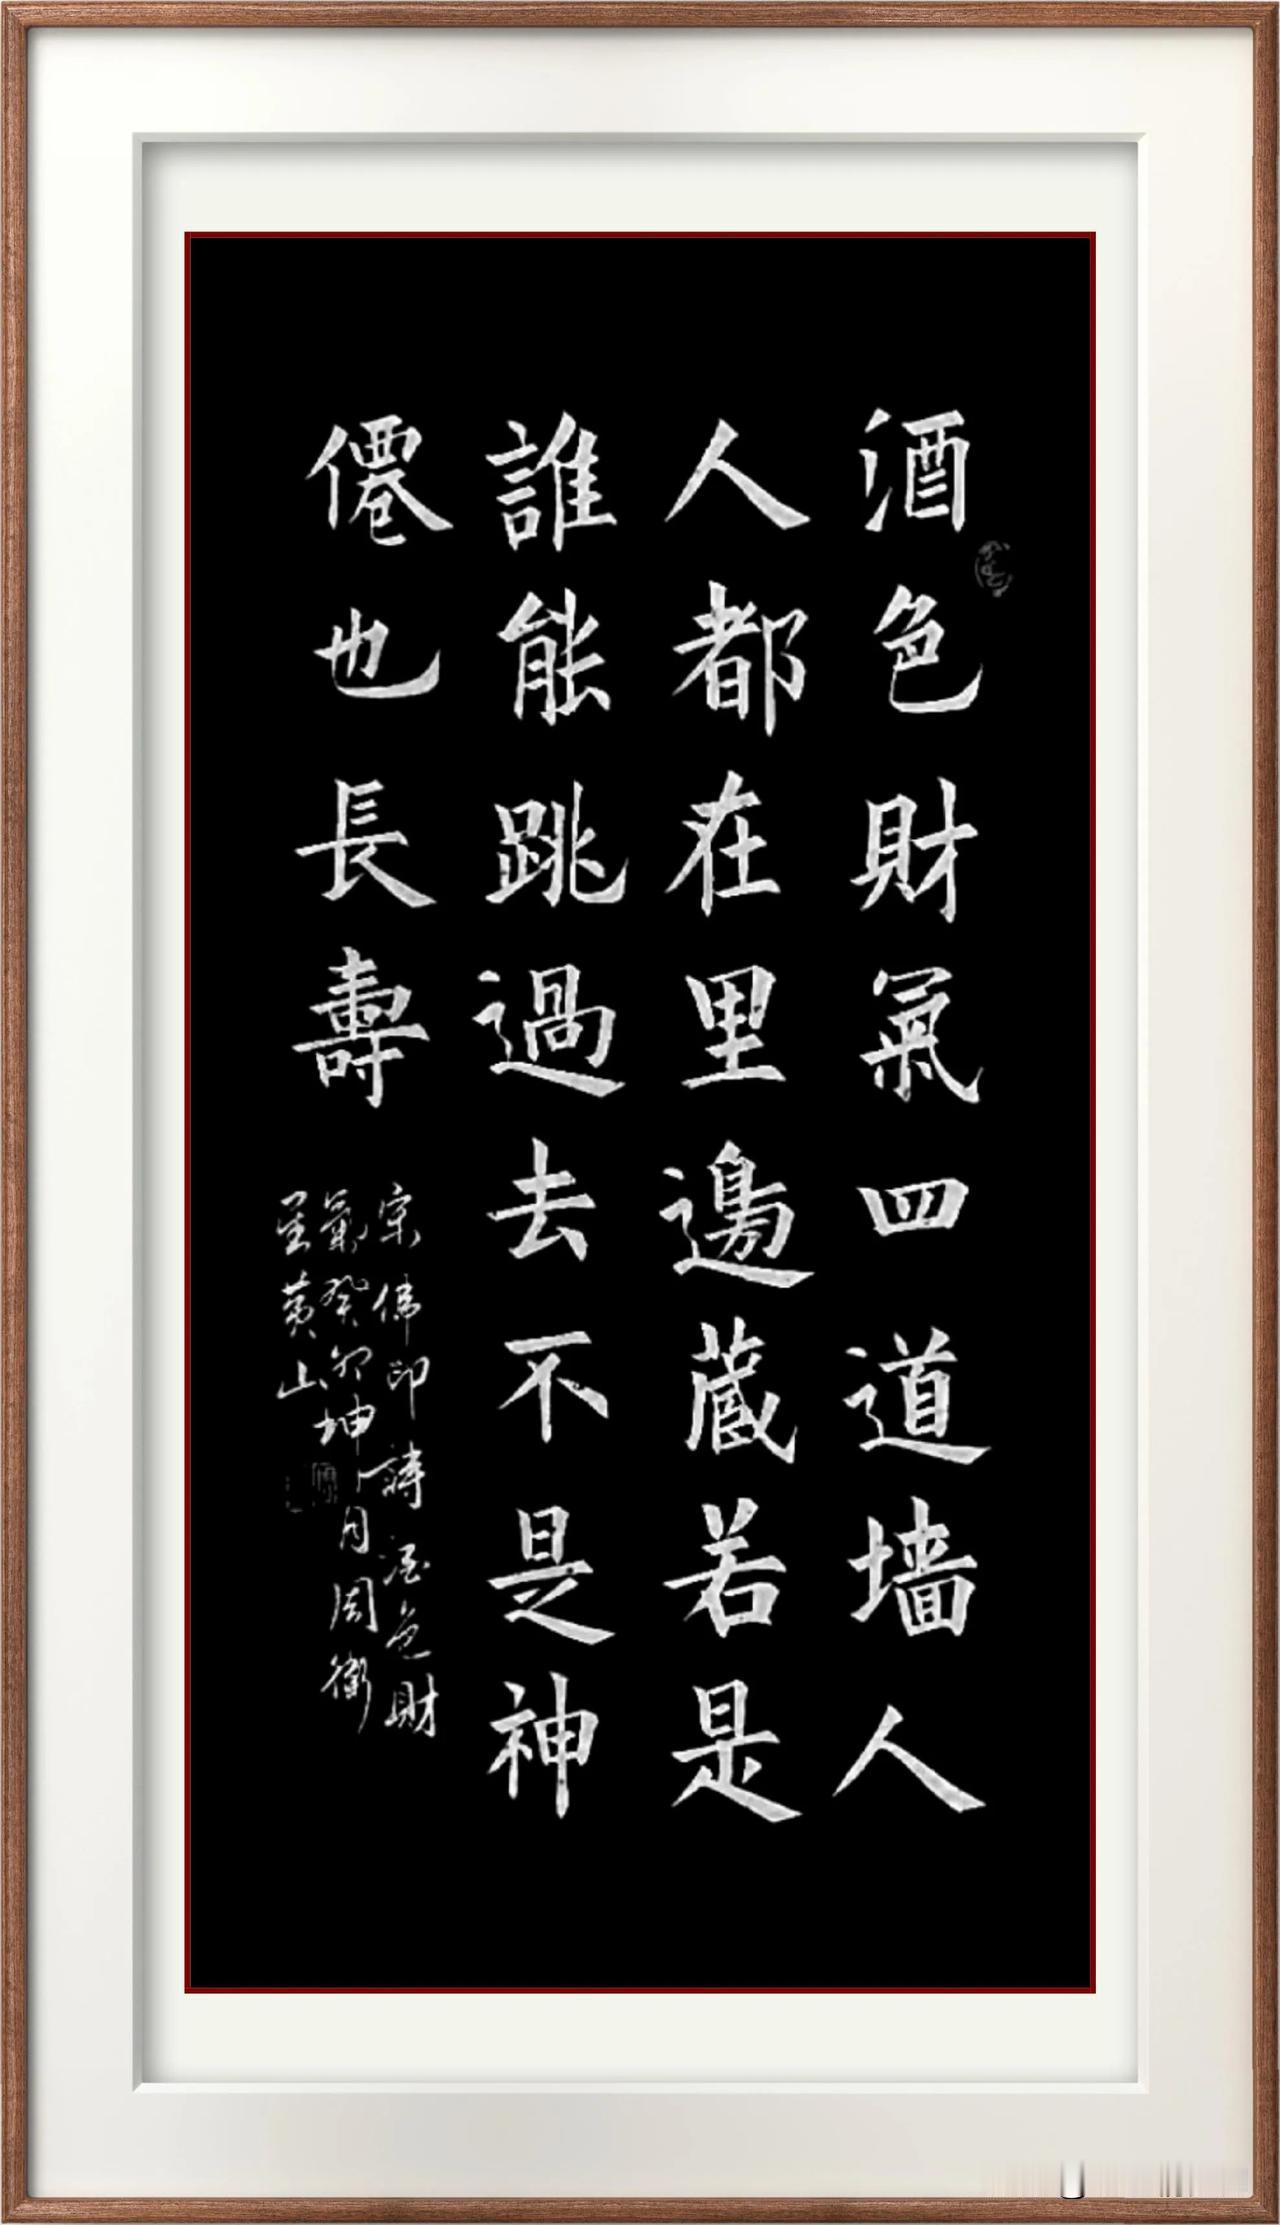 酒色財氣四道墙人
人都在里邊藏若是
誰能跳過去不是神
僊也長壽
宋佛印詩酒色財
氣癸卯坤月周衛
星黄山